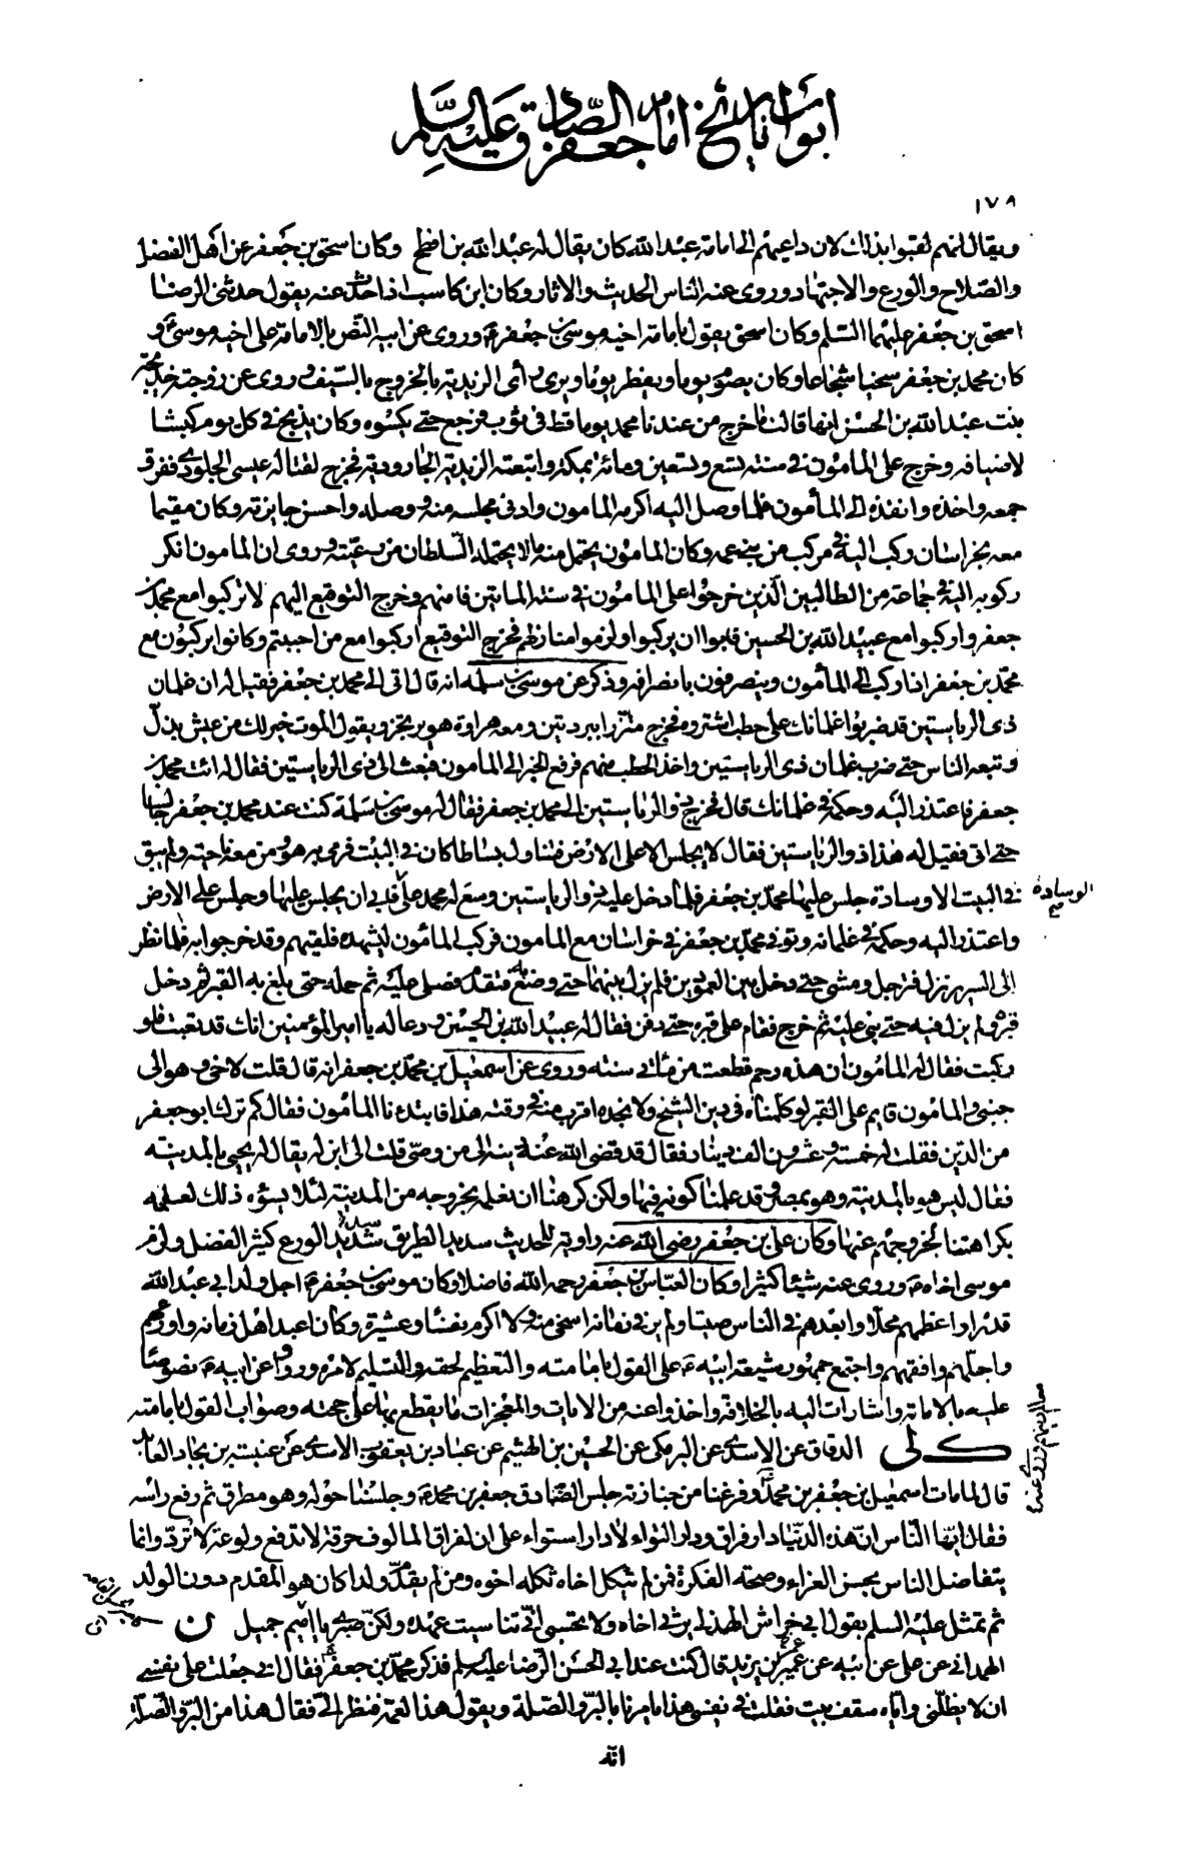 أبواب تاريخ امام جعفر الصادق عليه السلم
١٧٨
ويقال انهم لقبوا بذلك لان داعيهم الى امامة عبد الله كان يقال له عبد الله بن افطح وكان اسحق بن جعفر من اهل الفضل
والصلاح والورع والاجتهاد وروى عنه الناس الحديث والاثار وكان ابن كاسب اذا حدث عنه يقول حدثني الرضا
اسحق بن جعفر عليهما السلم وكان اسحق يقول بامامة اخيه موسى بن جعفر ع وروى عن ابيه النص بالامامة على اخيه موسى ع و
كان محمد بن جعفر سخيا شجاعا وكان يصوم يوما ويفطر يوما ويرى رأى الزيدية بالخروج بالسيف وروى عن زوجته خديجة
بنت عبد الله بن الحسين انها قالت ما خرج من عندنا محمد يوما قط في ثوب فرجع حتى يكسوه وكان يذبح في كل يوم كبشا
لاضيافه وخرج على المأمون في سنة تسع وتسعين ومائة بمكة واتبعته الزيدية الجارودية فخرج لقتاله عيسى الجلودي ففرق
جمعه واخذه وانفذه الى المأمون فلما وصل اليه اكرمه المأمون وادنى مجلسه منه ووصله واحسن جايزته وكان مقيما
معه بخراسان يركب اليه في مركب من بني عمه وكان المأمون يحتمل منه ما لا يحتمله السلطان من رعيته وروى ان المامون انكر
ركوبه اليه في جماعة من الطالبيين الذين خرجوا على المأمون في سنة المائتين فامنهم وخرج التوقيع اليهم لا تركبوا مع محمد بن
جعفر واركبوا مع عبيد الله بن الحسين فابوا ان يركبوا ولزموا منازلهم فخرج التوقيع اركبوا مع من احببتم وكانوا يركبون مع
محمد بن جعفر اذا ركب الى المأمون وينصرفون بانصرافه وذكر عن موسى بن سلمة انه قال اتى الى محمد بن جعفر فقيل له ان غلمان
ذى الرياستين قد ضربوا غلمانك على حطب اشتروه فخرج متزرا ببردتين ومعه هراوة وهو يرتجز ويقول الموت خير لك من عيش بذل
وتبعه الناس حتى ضرب غلمان ذى الرياستين واخذ الحطب منهم فرفع الخبر الى المامون فبعث الى ذى الرياستين فقال له ائت محمد بن
جعفر فاعتذر اليه وحكمه في غلمانك قال فخرج ذو الرياستين الى محمد بن جعفر فقال له موسى بن سلمة كنت عند محمد بن جعفر جالسا
حتى اتى فقيل له هذا ذو الرياستين فقال لا يجلس الا على الارض فتناول بساطا كان في البيت فرمى به هو ومن معه ناحية ولم يبق
في البيت الا وسادة جلس عليها محمد بن جعفر فلما دخل عليه ذو الرياستين وسع له محمد على فابى ان يجلس عليها وجلس على الارض
الوسادة
صح
واعتذر اليه وحكمه في غلمانه وتوفى محمد بن جعفر في خراسان مع المامون فركب المأمون ليشهده فلقيهم وقد خرجوا به فلما نظر
الى السرير نزل فترجل ومشى حتى دخل بين العمودين فلم يزل بينهما حتى وضع به فتقدم فصلى عليه ثم حمله حتى بلغ به القبر ثم دخل
قبره ولم يزل فيه حتى بنى عليه ثم خرج فقام على قبره حتى دفن فقال له عبيد الله بن الحسين ودعا له يا امير المؤمنين انك قد تعبت فلو
ركبت فقال له المأمون ان هذه رحم قطعت من مائتى سنة وروى عن اسمعيل بن محمد بن جعفر انه قال قلت لاخى وهو الى
جنبى والمامون قايم على القبر لو كلمناه في دين الشيخ ولا نجده اقرب منه في وقته هذا فابتدءنا المأمون فقال كم ترك ابو جعفر
من الدين فقلت له خمسة وعشرون الف دينار فقال قد قضى الله عنه دينه الى من وصى قلت الى ابن له يقال له يحيى بالمدينة
فقال ليس هو بالمدينة وهو بمصر وقد علمنا كونه فيها ولكن كرهنا ان نعلمه بخروجه من المدينة لئلا يسؤه ذلك لعلمه
بكراهتنا لخروجهم عنها وكان على بن جعفر رضى الله عنه راوية للحديث سديد الطريق شديد الورع كثير الفضل ولزم
موسى اخاه ع وروى عنه شيئا كثيرا وكان العباس بن جعفر رحمه الله فاضلا وكان موسى بن جعفر ع اجل ولد ابى عبد الله
قدرا واعظمهم محلا وابعدهم في الناس صيتا ولم ير في زمانه اسخى منه ولا اكرم نفسا وعشيرة وكان اعبد اهل زمانه واورعهم
واجلهم وافقههم واجتمع جمهور شيعة ابيه ع على القول بامامته والتعظيم لحقه والتسليم لامره ورووا عن ابيه ع نصوصا
عليه بالامامة واشارات اليه بالخلافة واخذوا عنه من الايات والمعجزات ما يقطع بها على حجته وصواب القول بامامته
كـ لى الدقاق عن الاسدى عن البرمكى عن الحسين بن الهيثم عن عباد بن يعقوب الاسدى عن عنبسة بن بجاد العابد
قال لما مات اسمعيل بن جعفر بن محمد وفرغنا من جنازته جلس الصادق جعفر بن محمد ع وجلسنا حوله وهو مطرق ثم رفع رأسه
فقال ايها الناس ان هذه الدنيا دار فراق ودار التواء لا دار استواء على ان لفراق المالوف حرقة لا تدفع ولوعة لا ترد وانما
يتفاضل الناس بحسن العزاء وصحة الفكرة فمن لم يثكل اخاه ثكله اخوه ومن لم يقدم ولدا كان هو المقدم دون الولد
ثم تمثل عليه السلم بقول ابى خراش الهذلى يرثى اخاه ولا تحسبى انى تناسيت عهده ولكن صبرى يا اميم جميل ن
الهمدانى عن على عن ابيه عن عمير بن يزيد قال كنت عند ابى الحسن الرضا عليه السلم فذكر محمد بن جعفر فقال انى جعلت على نفسى
ان لا يظلنى واياه سقف بيت فقلت في نفسى هذا يامرنا بالبر والصلة ويقول هذا لعمه فنظر الى فقال هذا من البر والصلة
انه